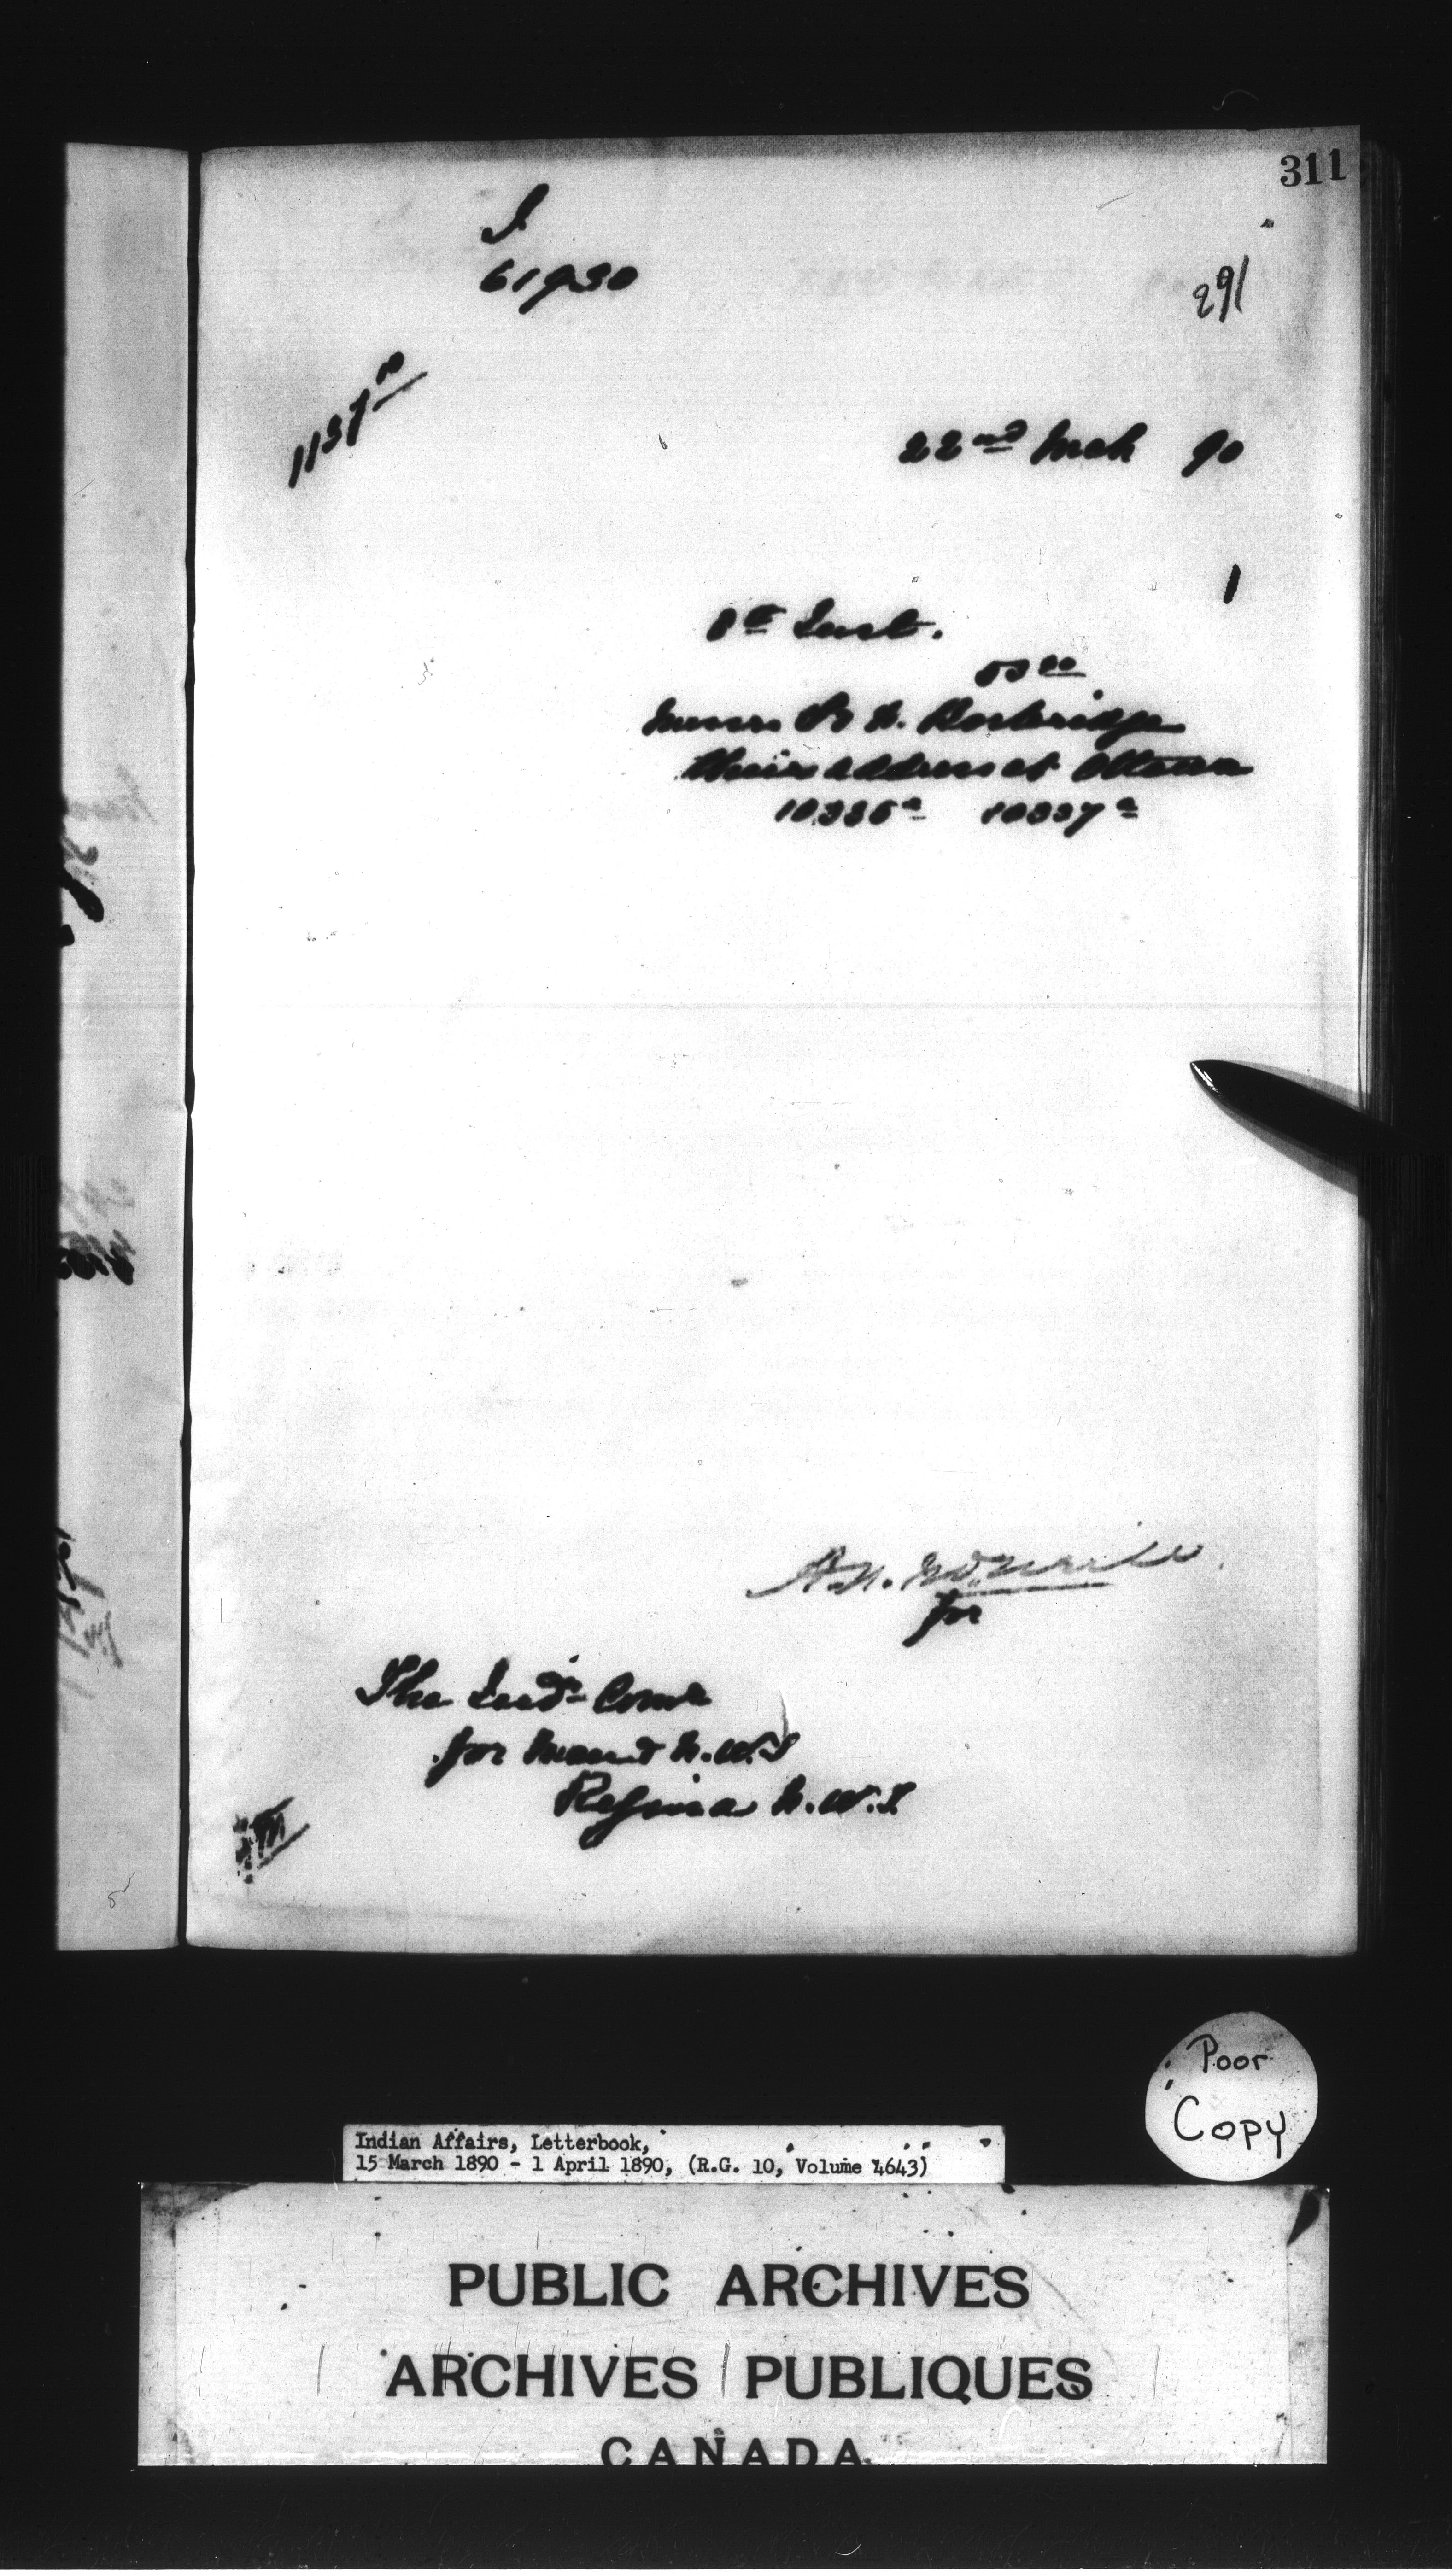 311
I
61930
291
1137
22nd Mch 90
1
8th Inst.
53 00
Messrs S & H. Borbridge
their address at Ottawa
10336 10337
A.N. McNeill
for
The Ind. Comr
for Man & N.W.T
Regina N.W.T.
Poor
Copy
Indian Affairs, Letterbook,
15 March 1890 - 1 April 1890, (R.G. 10, Volume 4643)
PUBLIC ARCHIVES
ARCHIVES PUBLIQUES
CANADA